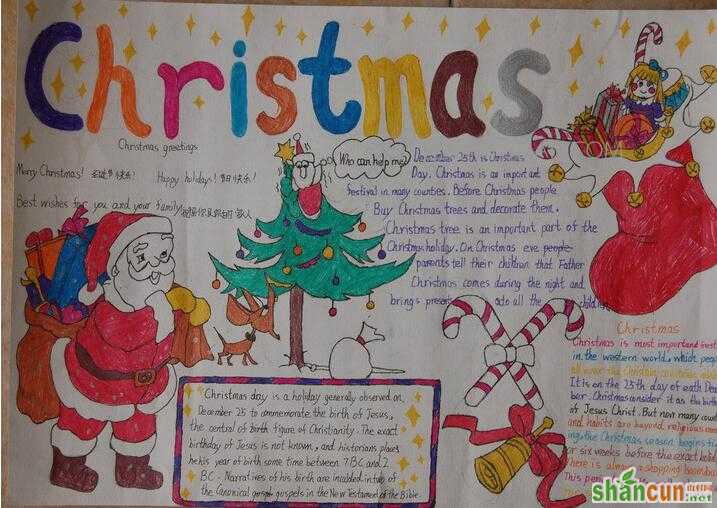 Christmas
Christmas greetings
Merry Christmas! 圣诞节快乐! Happy holidays! 节日快乐!
Best wishes for you and your family!
Who can help me?
December 25th is Christmas
Day. Christmas is an important
festival in many counties. Before Christmas people
Buy Christmas trees and decorate them.
Christmas tree is an important part of the
Christmas holiday. On Christmas eve people
parents tell their children that Father
Christmas comes during the night and
brings to all the
Christmas day is a holiday generally observed on
December 25 to commemorate the birth of Jesus,
the central of birth figure of Christianity. The exact
birthday of Jesus is not known, and historians place
his year of birth some time between 7BC and 2
BC. Narratives of his birth are included in two of
the Canonical gospels in the New Testament of the Bible.
Christmas
Christmas is most important fest
in the western world. which peop
all over the
It is on the 25th day of each De
ber. Christmas consider it as the birth
of Jesus Christ. But now many coun
and habits are beyond religious
ing. the Christmas season begins
or six weeks before the exact holid
There is always a shopping
This
shancun
.net